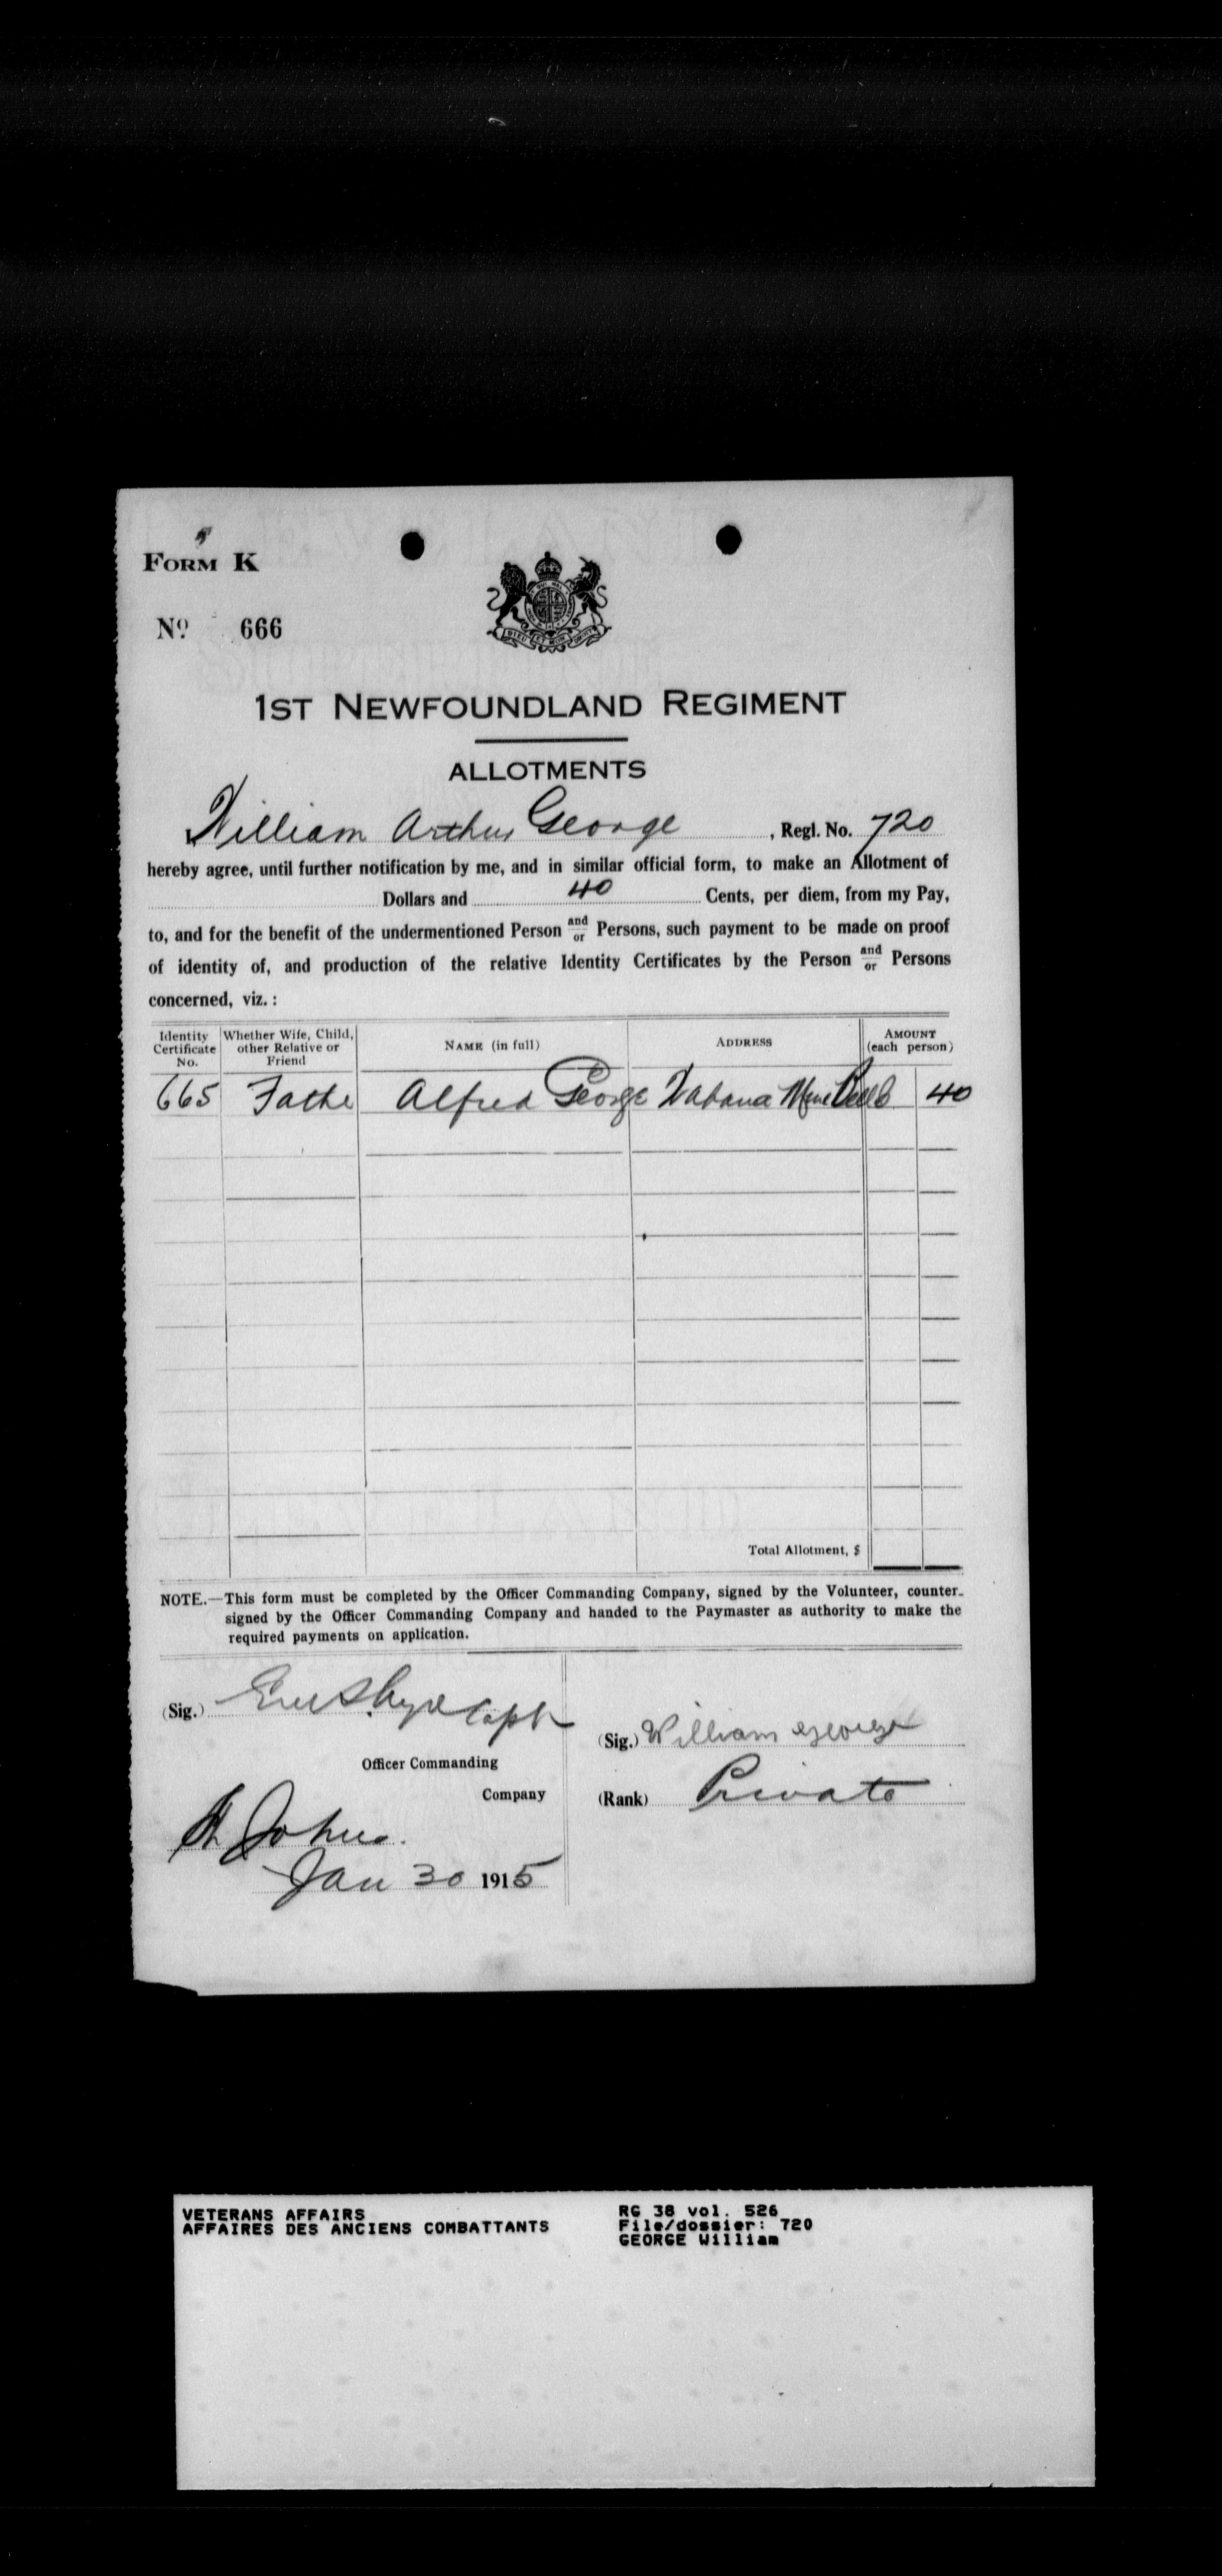 FORM K
Nº 666
DIEU ET MON DROIT
1ST NEWFOUNDLAND REGIMENT
ALLOTMENTS
William Arthur George , Regl. No. 720
hereby agree, until further notification by me, and in similar official form, to make an Allotment of
Dollars and 40 Cents, per diem, from my Pay,
to, and for the benefit of the undermentioned Person and/or Persons, such payment to be made on proof
of identity of, and production of the relative Identity Certificates by the Person and/or Persons
concerned, viz. :
Identity Certificate No. Whether Wife, Child, other Relative or Friend NAME (in full) ADDRESS AMOUNT (each person)
665 Fathe Alfred George Wabana Mine Bell 40
Total Allotment, $
NOTE.—This form must be completed by the Officer Commanding Company, signed by the Volunteer, counter-
signed by the Officer Commanding Company and handed to the Paymaster as authority to make the
required payments on application.
(Sig.) Capt
Officer Commanding
Company
(Sig.) William George
(Rank) Private
St Johns.
Jan 30 1915
VETERANS AFFAIRS
AFFAIRES DES ANCIENS COMBATTANTS
RG 38 vol. 526
File/dossier: 720
GEORGE William